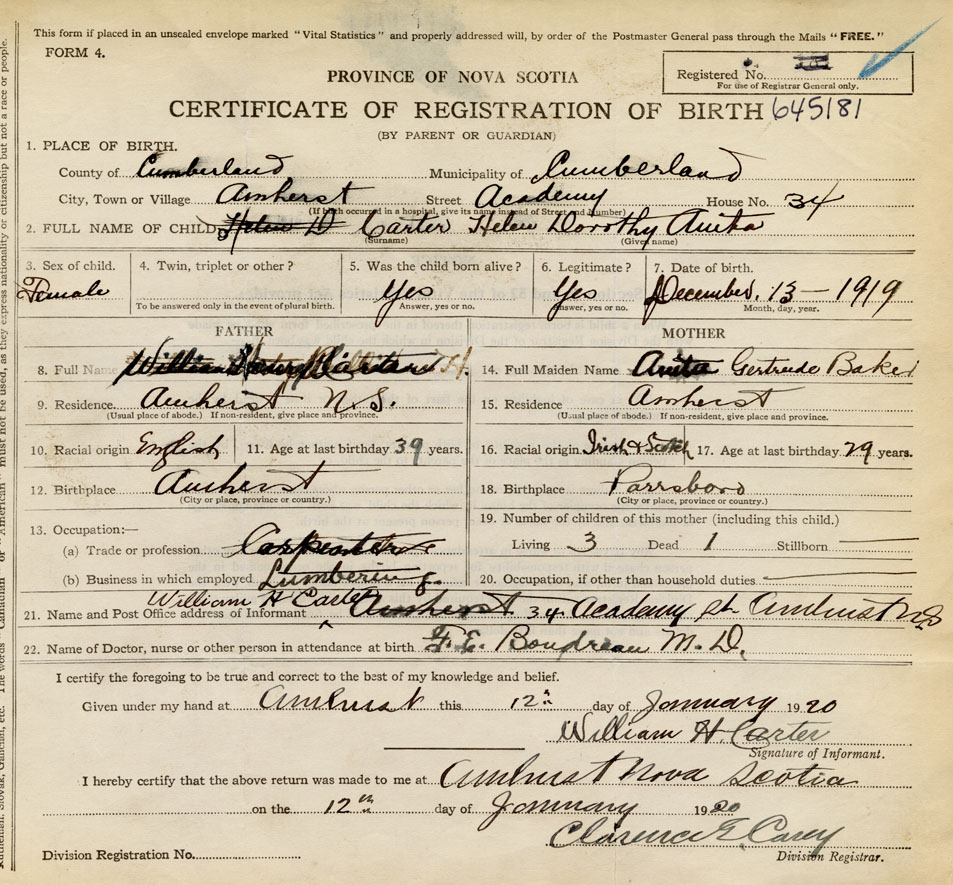 This form if placed in an unsealed envelope marked "Vital Statistics" and properly addressed will, by order of the Postmaster General pass through the Mails "FREE."
FORM 4.
Registered No.
For use of Registrar General only.
PROVINCE OF NOVA SCOTIA
CERTIFICATE OF REGISTRATION OF BIRTH 645181
(BY PARENT OR GUARDIAN)
1. PLACE OF BIRTH.
County of Cumberland Municipality of Cumberland
City, Town or Village Amherst Street Academy House No. 34
(If birth occurred in a hospital, give its name instead of Street and Number)
2. FULL NAME OF CHILD Helen D Carter Helen Dorothy Anita
(Surname) (Given name)
3. Sex of child. 4. Twin, triplet or other? 5. Was the child born alive? 6. Legitimate? 7. Date of birth.
Female Yes Yes December. 13 - 1919
To be answered only in the event of plural birth. Answer, yes or no. Answer, yes or no. Month, day, year.
FATHER MOTHER
8. Full Name William 14. Full Maiden Name Anita Gertrude Baker
9. Residence Amherst N.S. 15. Residence Amherst
(Usual place of abode.) If non-resident, give place and province. (Usual place of abode.) If non-resident, give place and province.
10. Racial origin English 11. Age at last birthday 39 years. 16. Racial origin Irish & Scotch 17. Age at last birthday 29 years.
12. Birthplace Amherst 18. Birthplace Parrsboro
(City or place, province or country.) (City or place, province or country.)
13. Occupation:— 19. Number of children of this mother (including this child.)
(a) Trade or profession Carpenter Living 3 Dead 1 Stillborn —
(b) Business in which employed Lumbering 20. Occupation, if other than household duties. —
William H Carter
21. Name and Post Office address of Informant Amherst 34 Academy st Amherst NS
22. Name of Doctor, nurse or other person in attendance at birth F. E. Boudreau M.D.
I certify the foregoing to be true and correct to the best of my knowledge and belief.
Given under my hand at Amherst this 12th day of January 1920
William H. Carter
Signature of Informant.
I hereby certify that the above return was made to me at Amherst Nova Scotia
on the 12th day of January 1920
Clarence E. Carey
Division Registrar.
Division Registration No.